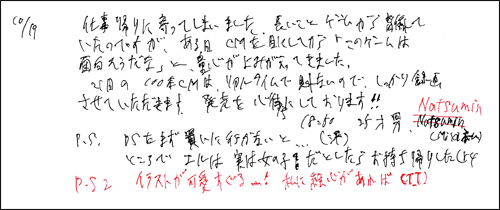 10/19
仕事帰りに寄ってしまいました。長いことゲームから離れて
いたのですが、ある日CMを目にしてから「このゲームは
面白そうだな」と、童心がよみがえってきました。
25日の CMはリアルタイムで観れないので、しっかり録画
させていただきます。発売を心待ちにしております!!
Natsumin
18:50 25才 男 Natsumin
P.S. DSをまず買いに行かないと…(涙)
ところでエルは実は女の子!だとしたらお持ち帰りしたい
P.S2 イラストが可愛すぎる…! 私に絵心があれば(TT)